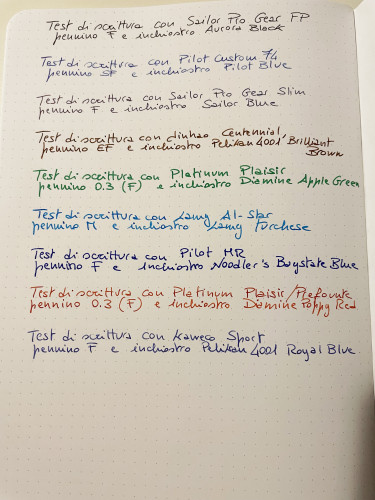 Test di scrittura con Sailor Pro Gear FP
pennino F e inchiostro Aurora Black
Test di scrittura con Pilot Custom 74
pennino SF e inchiostro Pilot Blue
Test di scrittura con Sailor Pro Gear Slim
pennino F e inchiostro Sailor Blue
Test di scrittura con dinhao Centennial
pennino EF e inchiostro Pelikan 4001 Brilliant
Brown
Test di scrittura con Platinum Plaisir
pennino 0.3 (F) e inchiostro Diamine Apple Green
Test di scrittura con Lamy Al-Star
pennino M e inchiostro Lamy Turchese
Test di scrittura con Pilot MR
pennino F e inchiostro Noodler's Baystate Blue
Test di scrittura con Platinum Plaisir/Prefounte
pennino 0.3 (F) e inchiostro Diamine Poppy Red
Test di scrittura con Kaweco Sport
pennino F e inchiostro Pelikan 4001 Royal Blue.